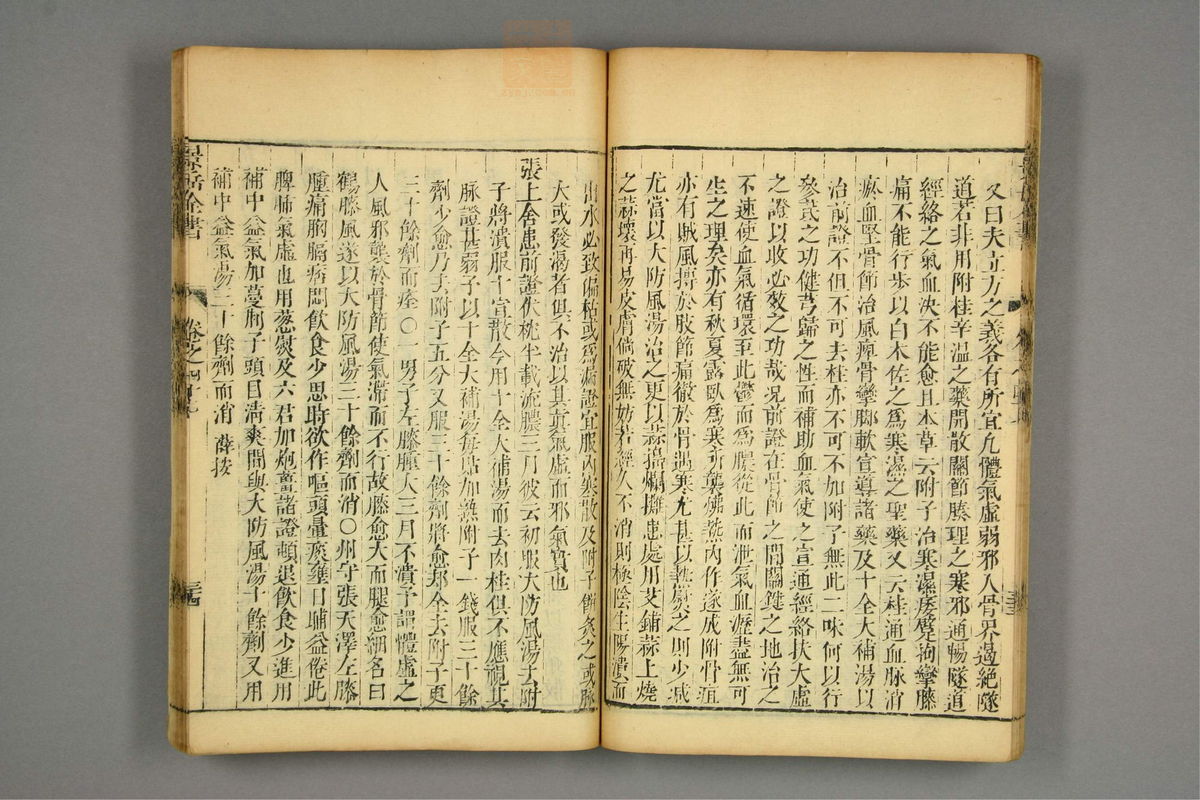 又曰夫立方之義各有所宜凡體氣虛弱邪入骨界遏絕隧
道若非用附桂辛溫之藥開散關節腠理之寒邪通暢隧道
經絡之氣血決不能愈且本草云附子治寒濕痿躄拘攣膝
痛不能行步以白木佐之爲寒濕之聖藥又云桂通血脉消
瘀血堅骨節治風痺骨攣脚軟宣導諸藥及十全大補湯以
治前證不但不可去桂亦不可不加附子無此二味何以行
參芪之功健芎歸之性而補助血氣使之宣通經絡扶大虛
之證以收必效之功哉况前證在骨節之間關鍵之地治之
不速使血氣循環至此鬱而爲膿從此而泄氣血瀝盡無可
生之理矣亦有秋夏露臥爲寒所襲拂熱內作遂成附骨疽
亦有賊風搏於肢節痛徹於骨遇寒尤甚以熱熨之則少減
尤當以大防風湯治之更以蒜搗爛攤患處用艾鋪蒜上燒
之蒜壞再易皮膚倘破無妨若經久不消則極陰生陽潰而
出水必致偏枯或爲漏證宜服內寒散及附子餅灸之或脉
大或發渴者俱不治以其眞氣虛而邪氣實也
張上舍患前證伏枕半載流膿三月彼云初服大防風湯去附
子將潰服十宣散今用十全大補湯而去肉桂俱不應視其
脉證甚弱予以十全大補湯每貼加熟附子一錢服三十餘
劑少愈乃去附子五分又服三十餘劑將愈却全去附子更
三十餘劑而痊○一男子左膝腫大三月不潰予謂體虛之
人風邪襲於骨節使氣滯而不行故膝愈大而腿愈細名曰
鶴膝風遂以大防風湯三十餘劑而消○州守張天澤左膝
腫痛胸膈痞悶飲食少思時欲作嘔頭暈痰壅日晡益倦此
脾肺氣虛也用葱熨及六君加炮薑諸證頓退飲食少進用
補中益氣加蔓荊子頭目清爽間與大防風湯十餘劑又用
補中益氣湯三十餘劑而消 薛按
景岳全書
卷之四十七
三十四